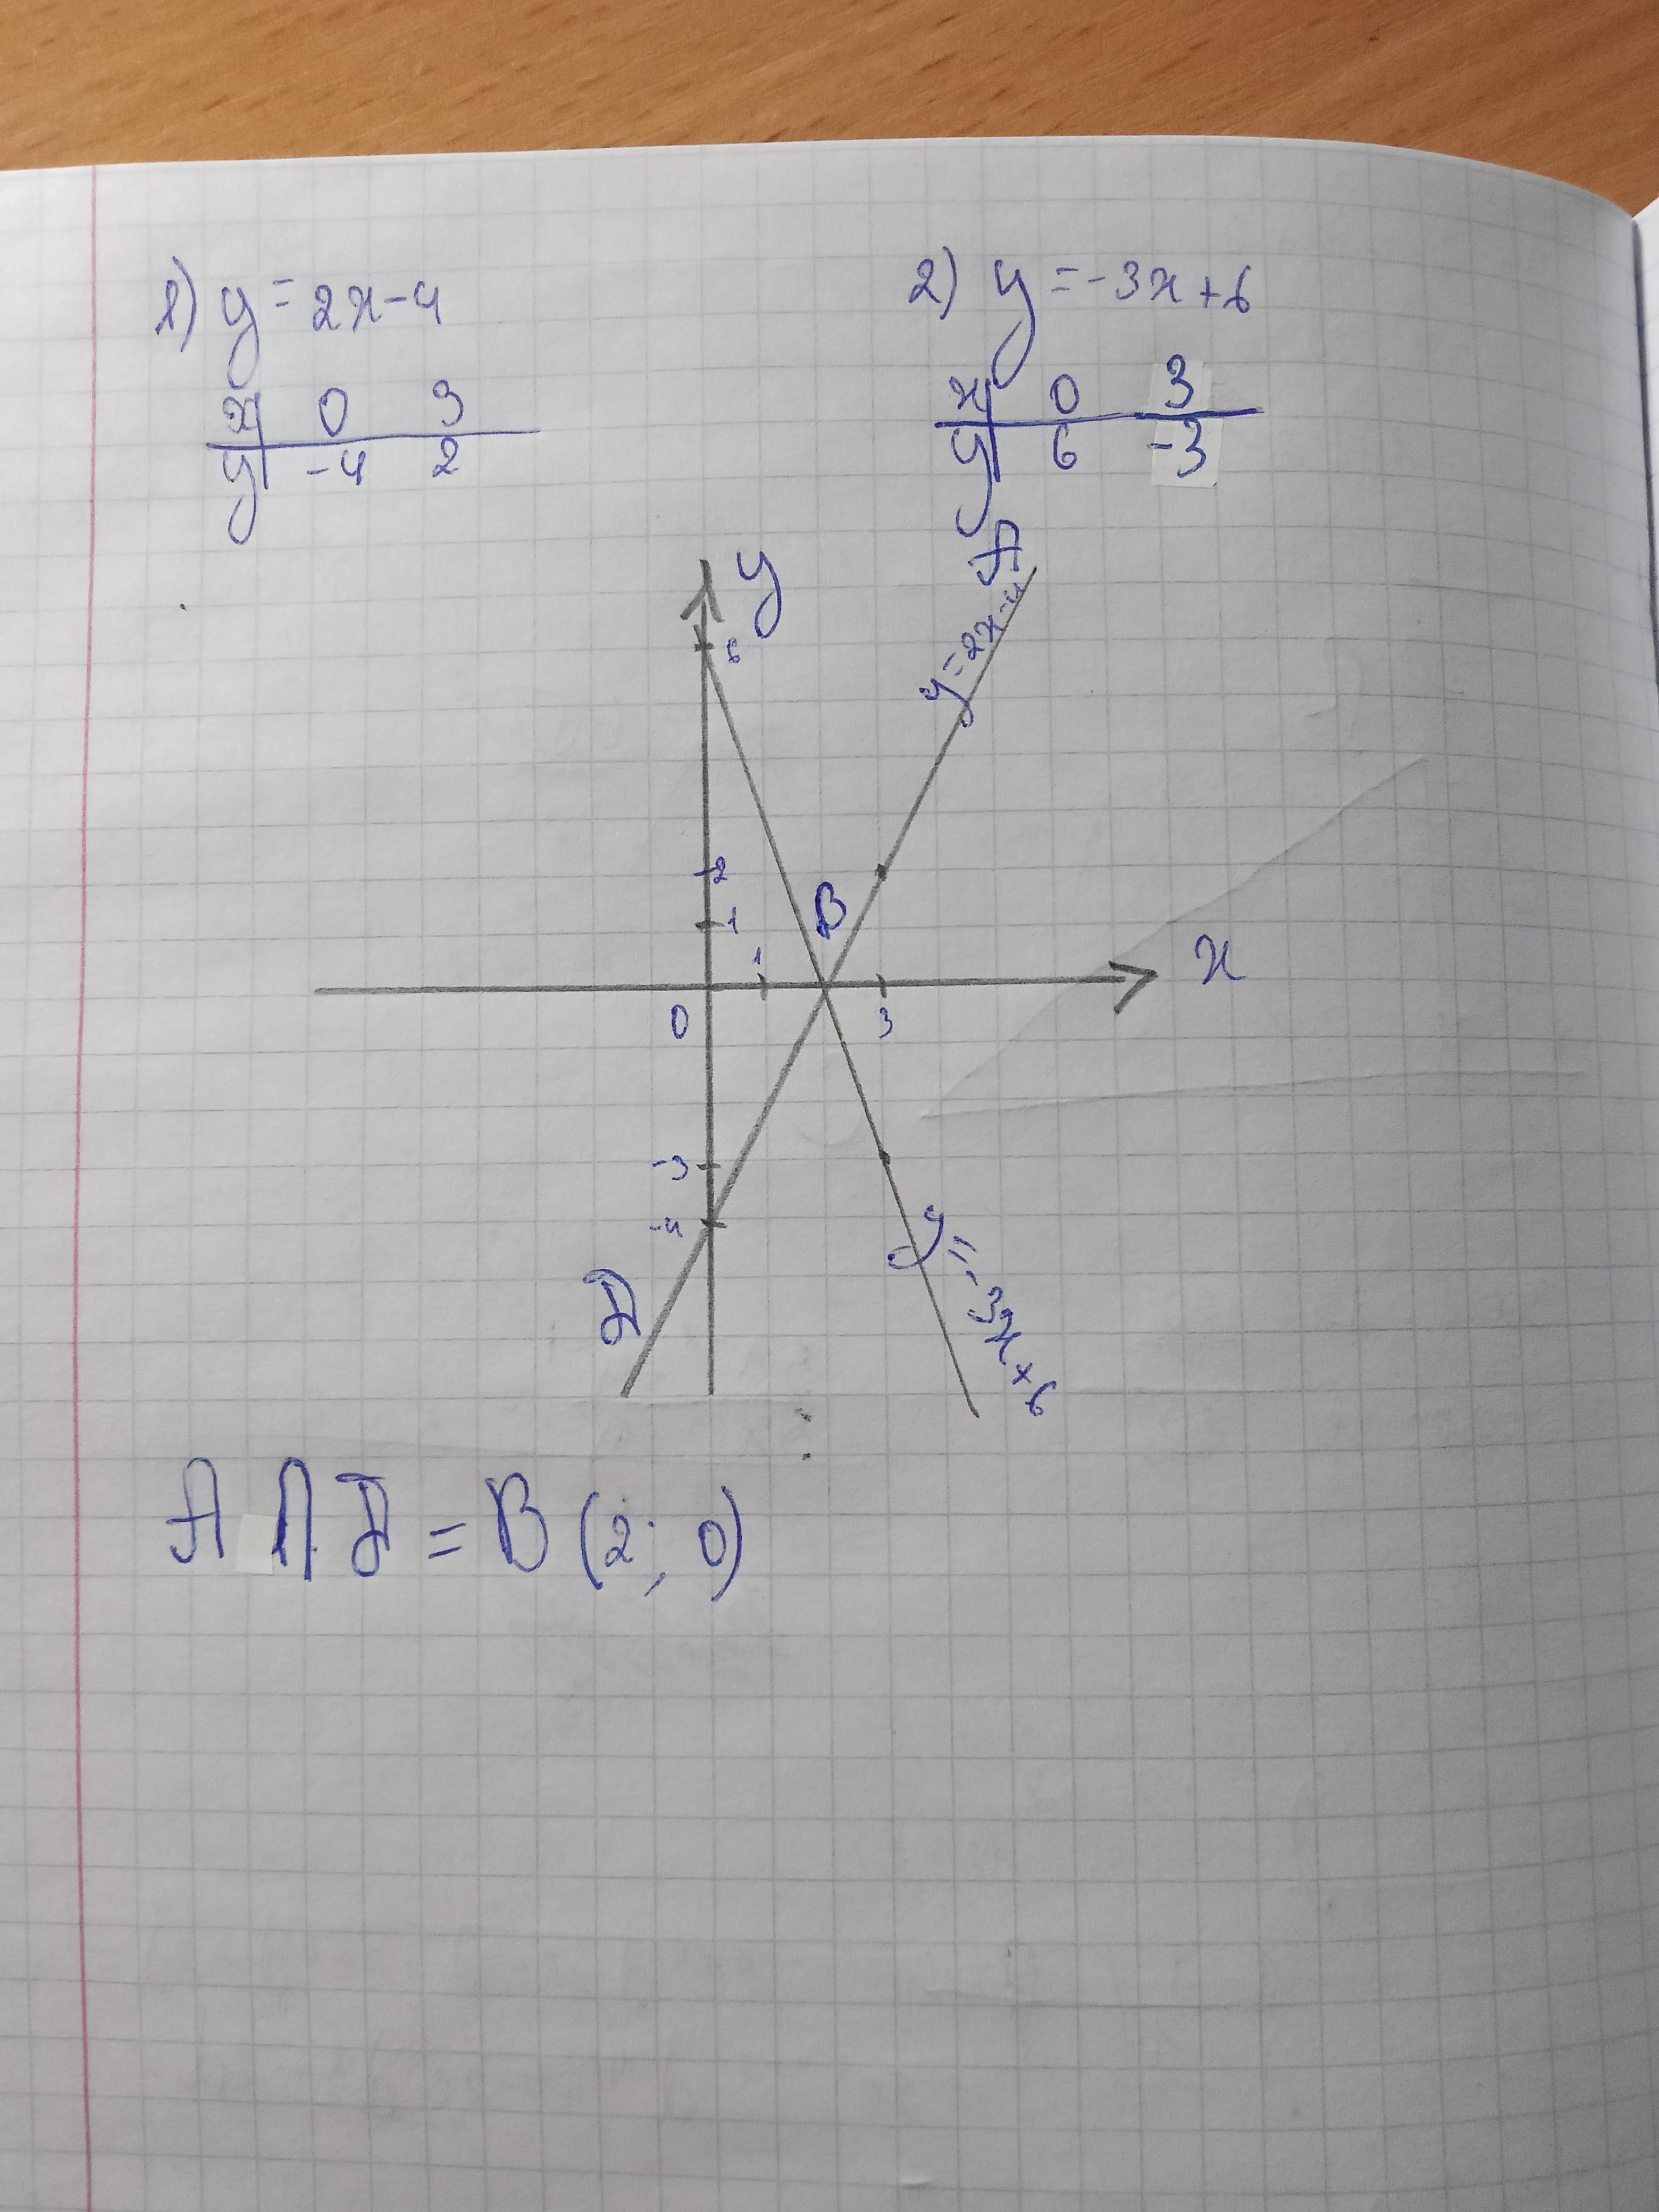 1) y = 2x-4
x 0 3
y -4 2
2) y = -3x+6
x 0 3
y 6 -3
y
A
y=2x-4
6
2
1
B
1
x
0
3
-3
-4
y=-3x+6
Д
A ∩ Д = B (2; 0)